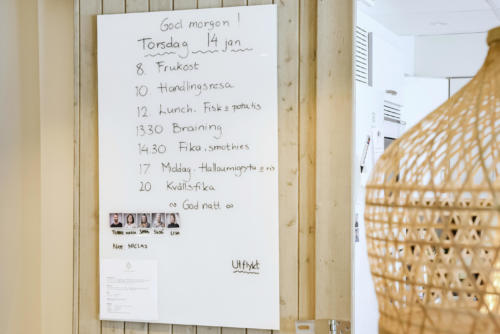 God morgon!
Torsdag 14 jan
8. Frukost
10 Handlingsresa
12. Lunch. Fisk & potatis
13.30 Braining
14.30 Fika, smothies
17 Middag. Halloumigryta & ris
20 Kvällsfika
God natt
LISA
Utflykt